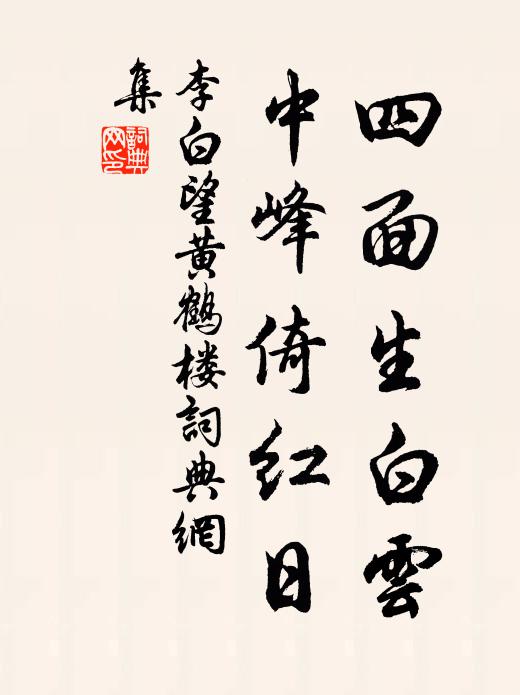 四面生白雲
中峰倚红日
李白望黄鶴楼詞典網
集
詞典網印